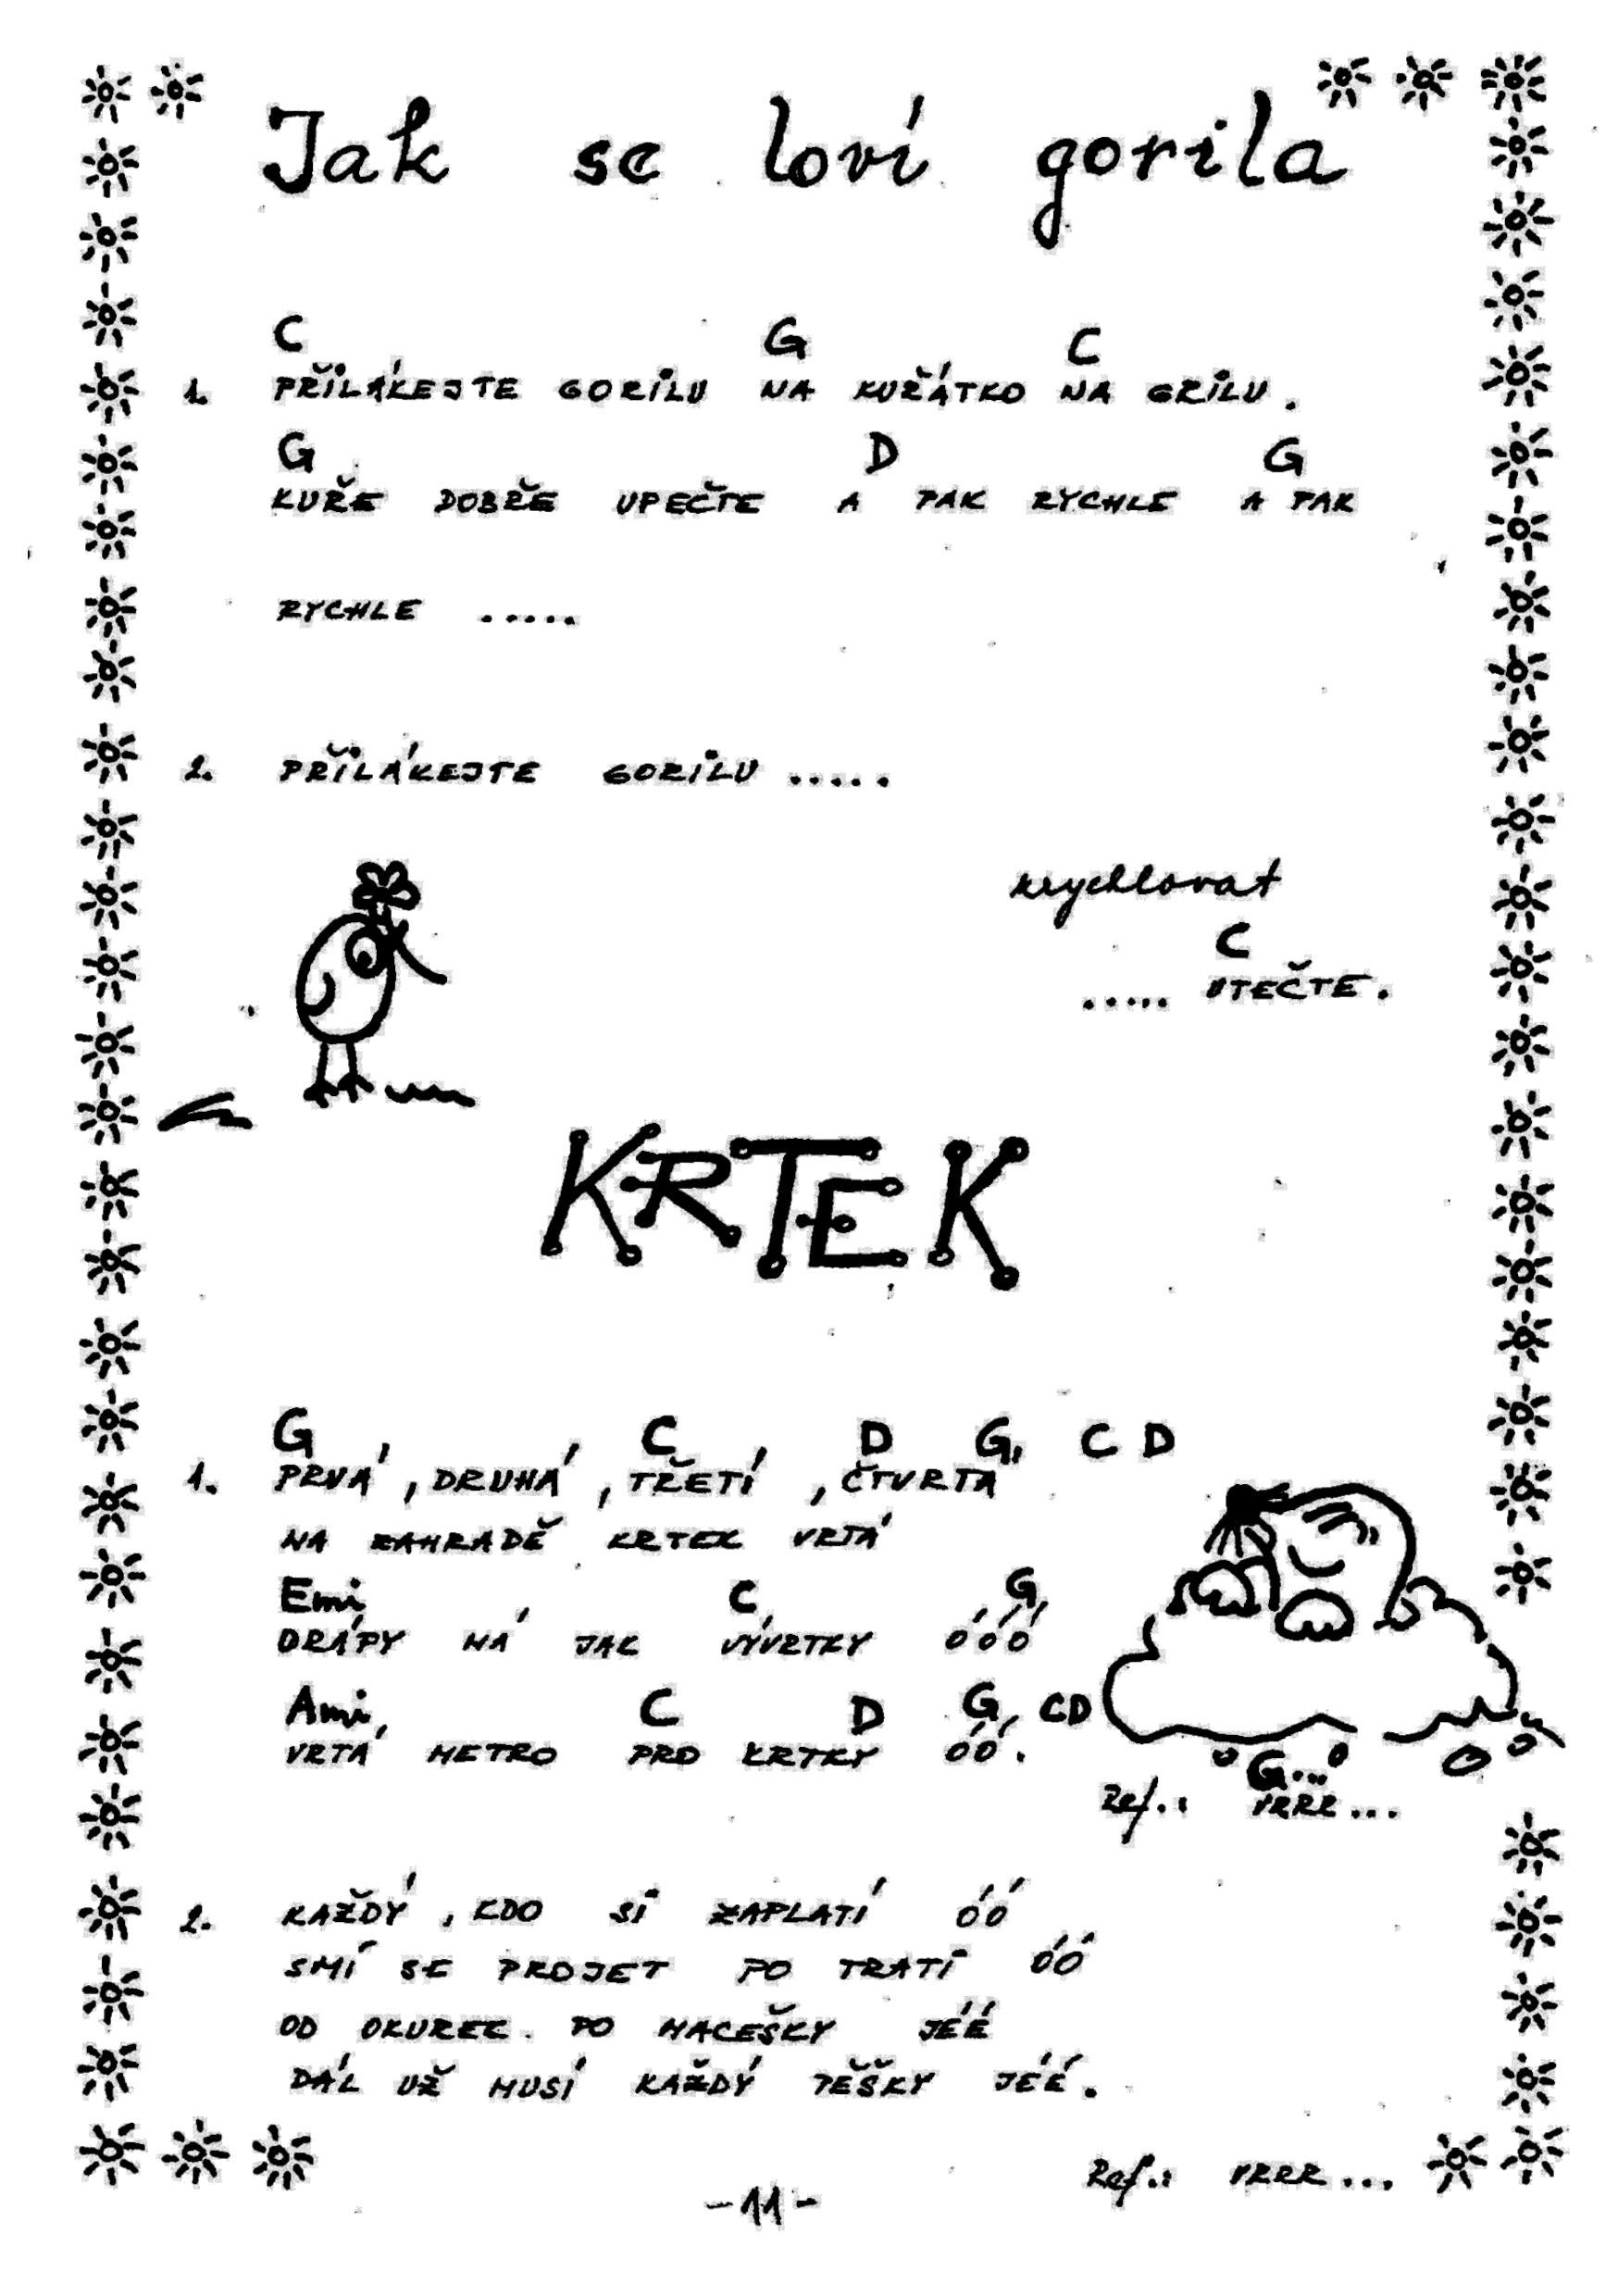 Jak se loví gorila
C G C
1. PŘILÁKEJTE GORILU NA KUŘÁTKO NA GRILU.
G D G
KUŘE DOBŘE UPEČTE A PAK RYCHLE A PAK
RYCHLE .....
2. PŘILÁKEJTE GORILU .....
C
..... UTEČTE.
KRTEK
G C D G C D
1. PRVÁ, DRUHÁ, TŘETÍ, ČTVRTÁ
NA ZAHRADĚ KRTEK VRTÁ
Emi C G
DRÁPY MÁ JAK VÝVRTKY ÓÓÓ
Ami C D G CD
VRTÁ METRO PRO KRTKY ÓÓ.
G...
Ref.: VRRR...
2. KAŽDÝ, KDO SI ZAPLATÍ ÓÓ
SMÍ SE PROJET PO TRATI ÓÓ
OD OKUREK PO MACEŠKY JÉÉ
DÁL UŽ MUSÍ KAŽDÝ PĚŠKY JÉÉ.
Ref.: VRRR...
-11-